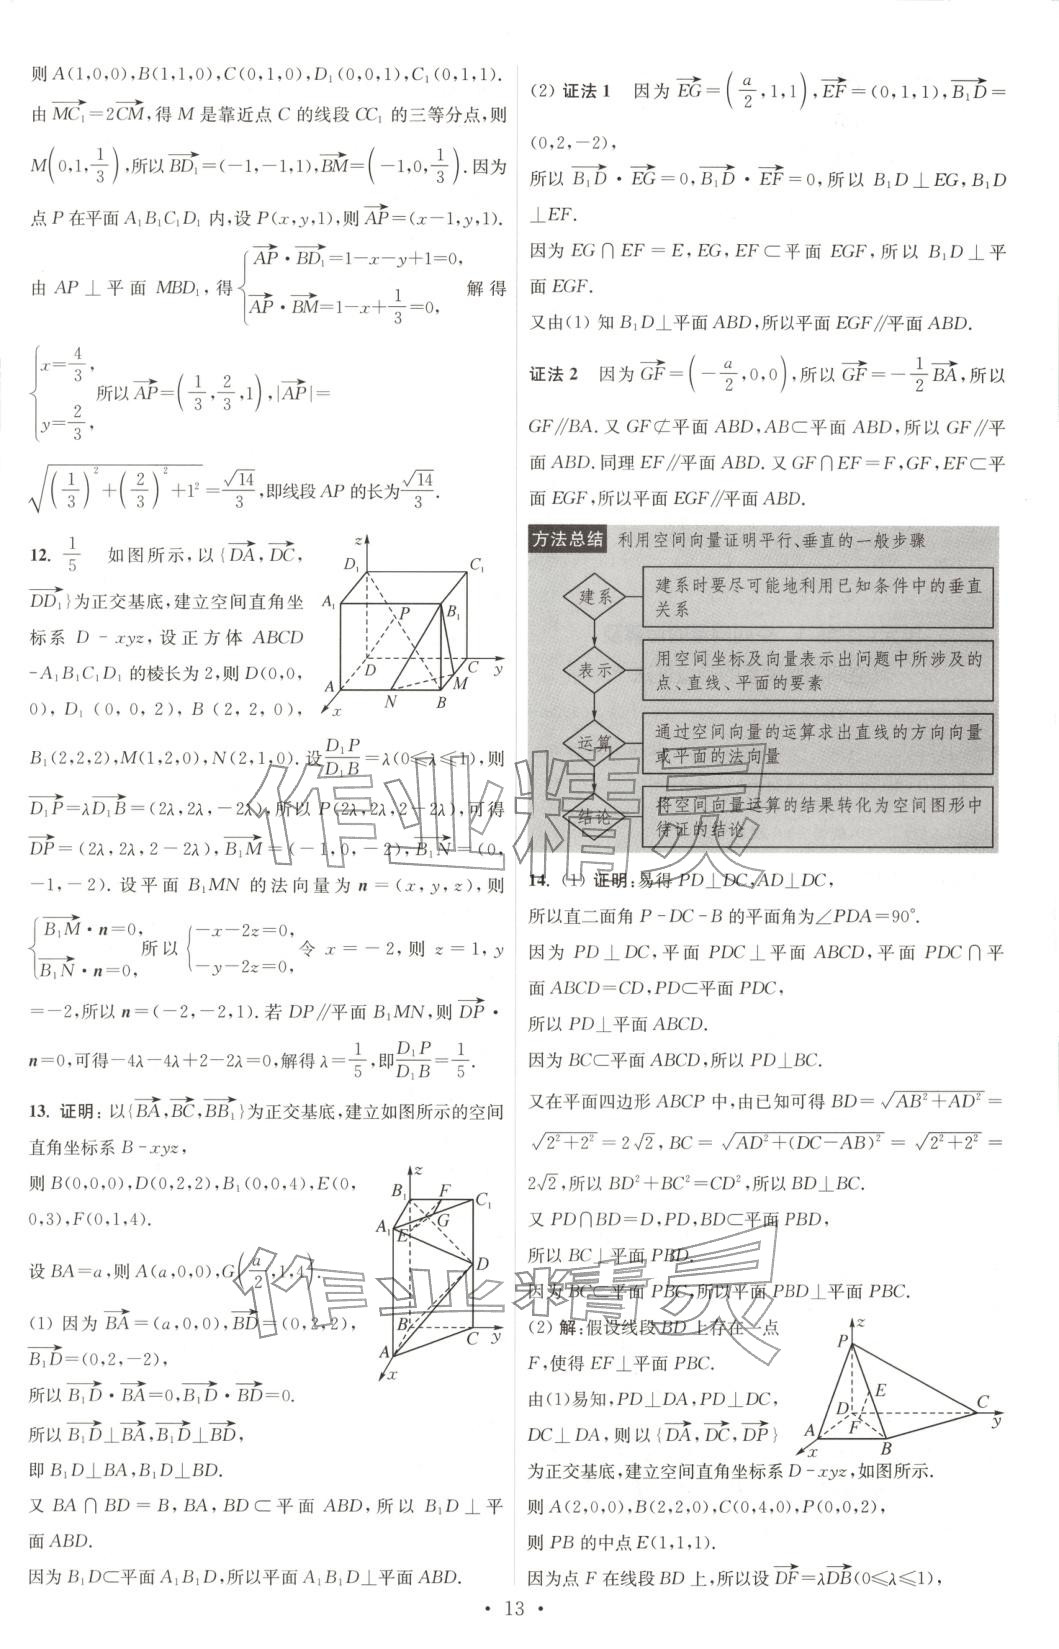 则 A(1,0,0),B(1,1,0),C(0,1,0),D₁(0,0,1),C₁(0,1,1).
由 $\overrightarrow{MC_1}=2\overrightarrow{CM}$,得 M 是靠近点 C 的线段 CC₁ 的三等分点,则
$M\left(0,1,\frac{1}{3}\right)$,所以 $\overrightarrow{BD_1}=(-1,-1,1),\overrightarrow{BM}=\left(-1,0,\frac{1}{3}\right)$.因为
点 P 在平面 A₁B₁C₁D₁ 内,设 P(x,y,1),则 $\overrightarrow{AP}=(x-1,y,1)$.
由 AP⊥平面 MBD₁,得 $\begin{cases}\overrightarrow{AP}\cdot\overrightarrow{BD_1}=1-x-y+1=0,\\ \overrightarrow{AP}\cdot\overrightarrow{BM}=1-x+\frac{1}{3}=0,\end{cases}$ 解得
$\begin{cases}x=\frac{4}{3},\\ y=\frac{2}{3},\end{cases}$ 所以 $\overrightarrow{AP}=\left(\frac{1}{3},\frac{2}{3},1\right),|\overrightarrow{AP}|=$
$\sqrt{\left(\frac{1}{3}\right)^2+\left(\frac{2}{3}\right)^2+1^2}=\frac{\sqrt{14}}{3}$,即线段 AP 的长为 $\frac{\sqrt{14}}{3}$.
12. $\frac{1}{5}$ 如图所示,以{$\overrightarrow{DA},\overrightarrow{DC}$,
$\overrightarrow{DD_1}$}为正交基底,建立空间直角坐
标系 D-xyz,设正方体 ABCD
-A₁B₁C₁D₁ 的棱长为 2,则 D(0,0,
0),D₁(0,0,2),B(2,2,0),
z D₁ C₁ A₁ P B₁ D C y A N B M x
B₁(2,2,2),M(1,2,0),N(2,1,0).设 $\frac{D_1P}{D_1B}=\lambda$(0⩽λ⩽1),则
$\overrightarrow{D_1P}=\lambda\overrightarrow{D_1B}=(2\lambda,2\lambda,-2\lambda)$,所以 P(2λ,2λ,2-2λ),可得
$\overrightarrow{DP}=(2\lambda,2\lambda,2-2\lambda),\overrightarrow{B_1M}=(-1,0,-2),\overrightarrow{B_1N}=(0,$
-1,-2).设平面 B₁MN 的法向量为 n=(x,y,z),则
$\begin{cases}\overrightarrow{B_1M}\cdot n=0,\\ \overrightarrow{B_1N}\cdot n=0,\end{cases}$ 所以 $\begin{cases}-x-2z=0,\\ -y-2z=0,\end{cases}$ 令 x=-2,则 z=1,y
=-2,所以 n=(-2,-2,1).若 DP∥平面 B₁MN,则 $\overrightarrow{DP}\cdot$
n=0,可得-4λ-4λ+2-2λ=0,解得 $\lambda=\frac{1}{5}$,即 $\frac{D_1P}{D_1B}=\frac{1}{5}$.
13. 证明:以{$\overrightarrow{BA},\overrightarrow{BC},\overrightarrow{BB_1}$}为正交基底,建立如图所示的空间
直角坐标系 B-xyz,
则 B(0,0,0),D(0,2,2),B₁(0,0,4),E(0,
0,3),F(0,1,4).
设 BA=a,则 A(a,0,0),$G\left(\frac{a}{2},1,4\right)$.
(1) 因为 $\overrightarrow{BA}=(a,0,0),\overrightarrow{BD}=(0,2,2)$,
$\overrightarrow{B_1D}=(0,2,-2)$,
z B₁ F C₁ A₁ E G D B C y A x
所以 $\overrightarrow{B_1D}\cdot\overrightarrow{BA}=0,\overrightarrow{B_1D}\cdot\overrightarrow{BD}=0$.
所以 $\overrightarrow{B_1D}\perp\overrightarrow{BA},\overrightarrow{B_1D}\perp\overrightarrow{BD}$,
即 B₁D⊥BA,B₁D⊥BD.
又 BA∩BD=B,BA,BD⊂平面 ABD,所以 B₁D⊥平
面 ABD.
因为 B₁D⊂平面 A₁B₁D,所以平面 A₁B₁D⊥平面 ABD.
(2) 证法 1 因为 $\overrightarrow{EG}=\left(\frac{a}{2},1,1\right),\overrightarrow{EF}=(0,1,1),\overrightarrow{B_1D}=$
(0,2,-2),
所以 $\overrightarrow{B_1D}\cdot\overrightarrow{EG}=0,\overrightarrow{B_1D}\cdot\overrightarrow{EF}=0$,所以 B₁D⊥EG,B₁D
⊥EF.
因为 EG∩EF=E,EG,EF⊂平面 EGF,所以 B₁D⊥平
面 EGF.
又由(1) 知 B₁D⊥平面 ABD,所以平面 EGF∥平面 ABD.
证法 2 因为 $\overrightarrow{GF}=\left(-\frac{a}{2},0,0\right)$,所以 $\overrightarrow{GF}=-\frac{1}{2}\overrightarrow{BA}$,所以
GF∥BA.又 GF⊄平面 ABD,AB⊂平面 ABD,所以 GF∥平
面 ABD.同理 EF∥平面 ABD.又 GF∩EF=F,GF,EF⊂平
面 EGF,所以平面 EGF∥平面 ABD.
方法总结 利用空间向量证明平行、垂直的一般步骤
建系 建系时要尽可能地利用已知条件中的垂直
关系
表示 用空间坐标及向量表示出问题中所涉及的
点、直线、平面的要素
运算 通过空间向量的运算求出直线的方向向量
或平面的法向量
结论 将空间向量运算的结果转化为空间图形中
待证的结论
14. (1) 证明:易得 PD⊥DC,AD⊥DC,
所以直二面角 P-DC-B 的平面角为∠PDA=90°.
因为 PD⊥DC,平面 PDC⊥平面 ABCD,平面 PDC∩平
面 ABCD=CD,PD⊂平面 PDC,
所以 PD⊥平面 ABCD.
因为 BC⊂平面 ABCD,所以 PD⊥BC.
又在平面四边形 ABCP 中,由已知可得 $BD=\sqrt{AB^2+AD^2}=$
$\sqrt{2^2+2^2}=2\sqrt{2},BC=\sqrt{AD^2+(DC-AB)^2}=\sqrt{2^2+2^2}=$
$2\sqrt{2}$,所以 BD²+BC²=CD²,所以 BD⊥BC.
又 PD∩BD=D,PD,BD⊂平面 PBD,
所以 BC⊥平面 PBD.
因为 BC⊂平面 PBC,所以平面 PBD⊥平面 PBC.
(2) 解:假设线段 BD 上存在一点
F,使得 EF⊥平面 PBC.
由(1)易知,PD⊥DA,PD⊥DC,
DC⊥DA,则以{$\overrightarrow{DA},\overrightarrow{DC},\overrightarrow{DP}$}
z P E D C y A F B x
为正交基底,建立空间直角坐标系 D-xyz,如图所示.
则 A(2,0,0),B(2,2,0),C(0,4,0),P(0,0,2),
则 PB 的中点 E(1,1,1).
因为点 F 在线段 BD 上,所以设 $\overrightarrow{DF}=\lambda\overrightarrow{DB}$(0⩽λ⩽1),
• 13 •
作业精灵
作业精灵